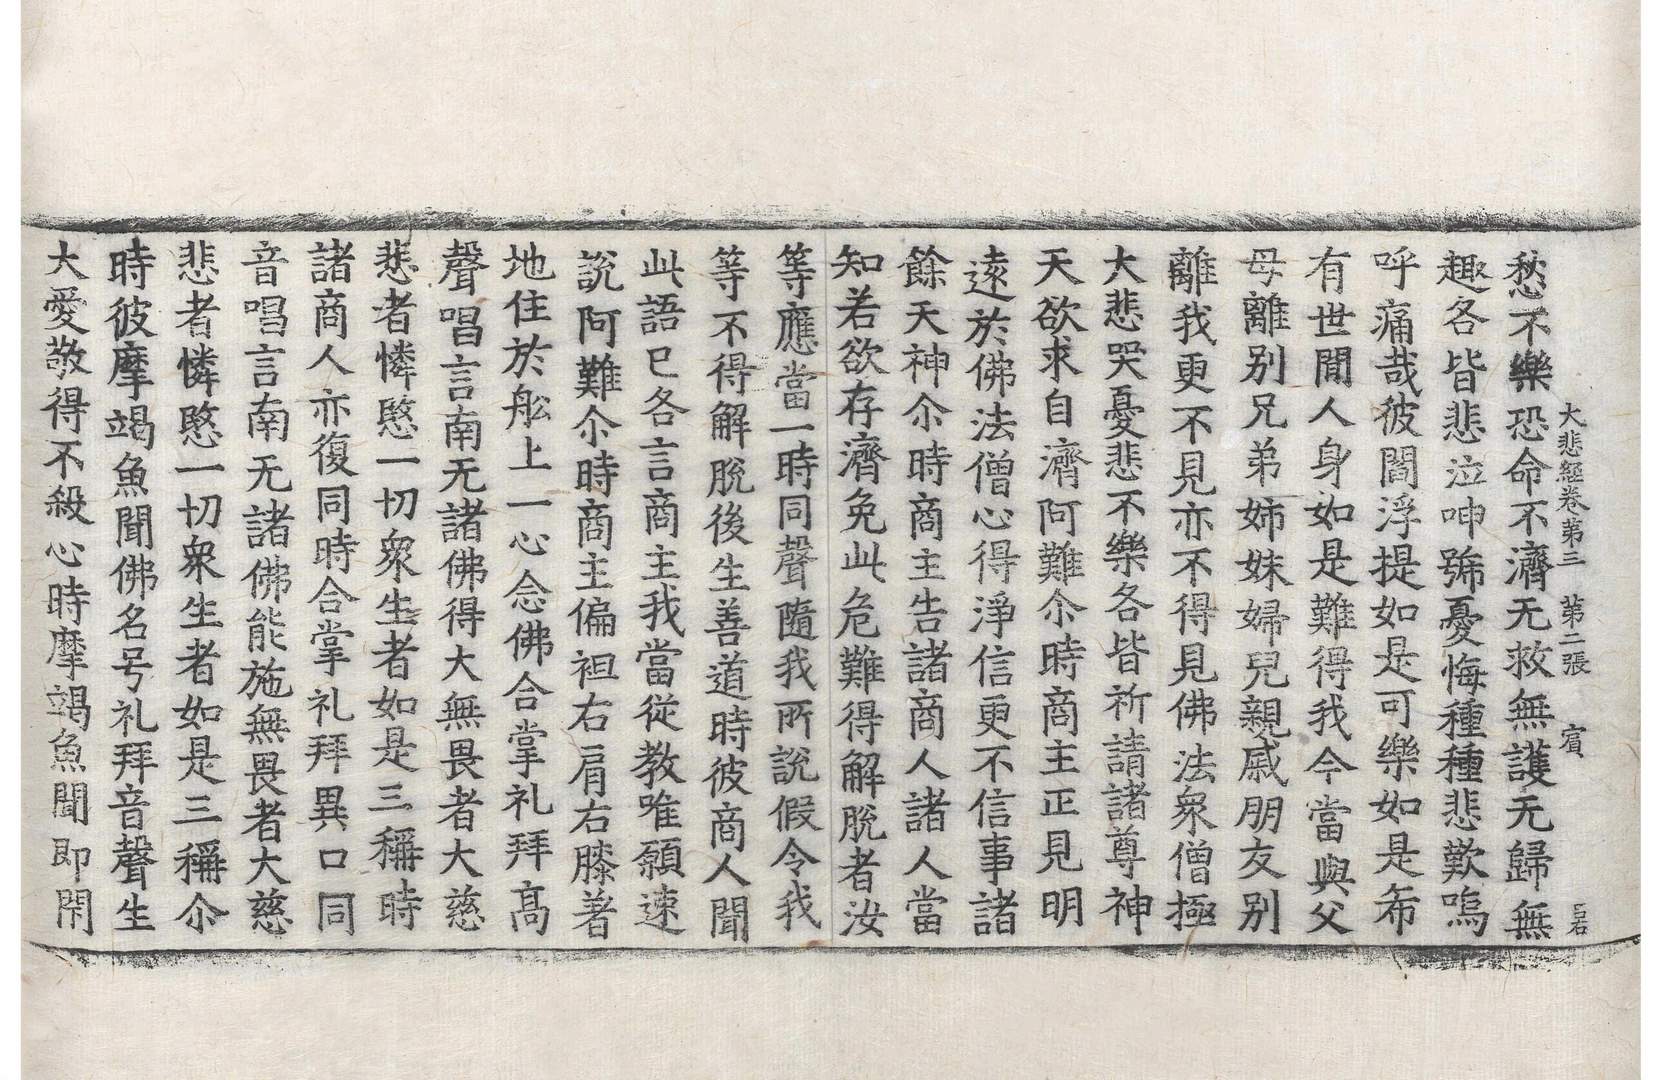 大悲經卷第三 第二張 賔
愁不樂恐命不濟无救無護无歸無
趣各皆悲泣呻號憂悔種種悲歎嗚
呼痛哉彼閻浮提如是可樂如是希
有世間人身如是難得我今當與父
母離别兄弟姉妹婦兒親戚朋友别
離我更不見亦不得見佛法衆僧極
大悲哭憂悲不樂各皆祈請諸尊神
天欲求自濟阿難尒時商主正見明
逺於佛法僧心得淨信更不信事諸
餘天神尒時商主告諸商人諸人當
知若欲存濟免此危難得解脫者汝
等應當一時同聲隨我所說假令我
等不得解脫後生善道時彼商人聞
此語已各言商主我當從教唯願速
說阿難尒時商主偏袒右肩右膝著
地住於舩上一心念佛合掌礼拜髙
聲唱言南无諸佛得大無畏者大慈
悲者憐愍一切衆生者如是三稱時
諸商人亦復同時合掌礼拜異口同
音唱言南无諸佛能施無畏者大慈
悲者憐愍一切衆生者如是三稱尒
時彼摩竭魚聞佛名号礼拜音聲生
大愛敬得不殺心時摩竭魚聞即閇